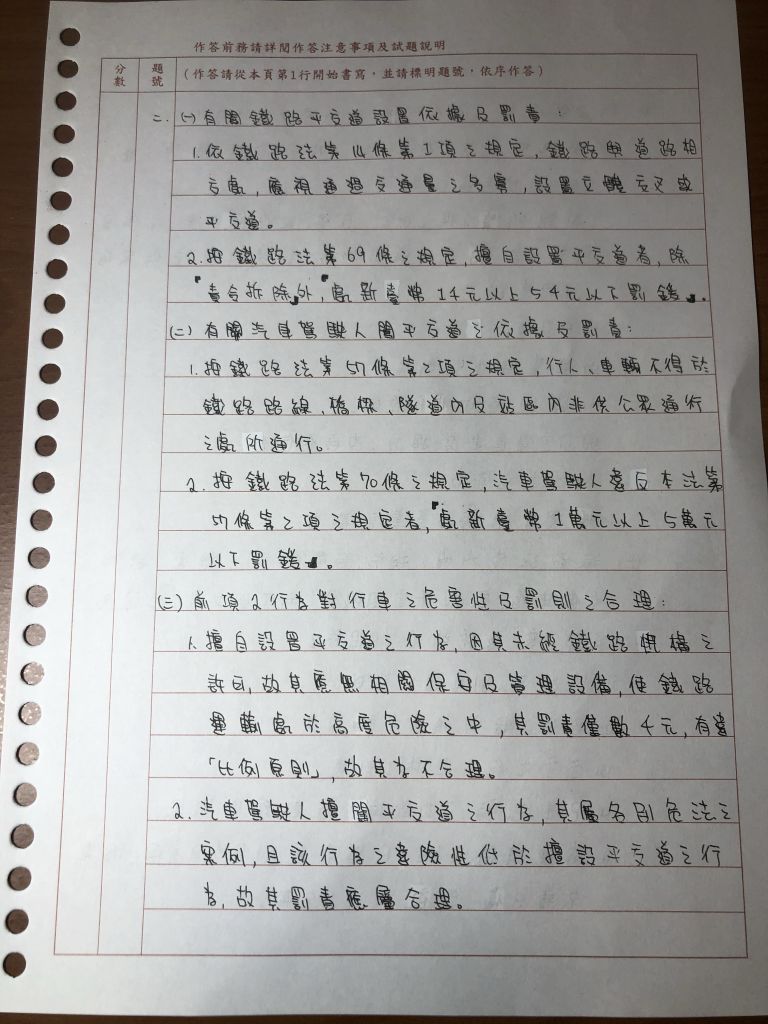 作答前務請詳閱作答注意事項及試題說明
分數
題號
(作答請從本頁第1行開始書寫,並請標明題號,依序作答)
二、(一)有關鐵路平交道設置依據及罰責:
1.依鐵路法第14條第1項之規定,鐵路與道路相
交處,應視通過交通量之多寡,設置立體交叉或
平交道。
2.按鐵路法第69條之規定,擅自設置平交道者,除
「責令拆除」外,「處新臺幣1千元以上5千元以下罰鍰」。
(二)有關汽車駕駛人闖平交道之依據及罰責:
1.按鐵路法第57條第2項之規定,行人、車輛不得於
鐵路路線、橋樑、隧道內及站區內非供公眾通行
之處所通行。
2.按鐵路法第70條之規定,汽車駕駛人違反本法第
57條第2項之規定者,「處新臺幣1萬元以上5萬元
以下罰鍰」。
(三)前項2行為對行車之危害性及罰則之合理:
1.擅自設置平交道之行為,因其未經鐵路機構之
許可,故其應無相關保安及管理設備,使鐵路
運輸處於高度危險之中,其罰責僅數千元,有違
「比例原則」,故其為不合理。
2.汽車駕駛人擅闖平交道之行為,其屬各別危法之
案例,且該行為之違險性低於擅設平交道之行
為,故其罰責應屬合理。